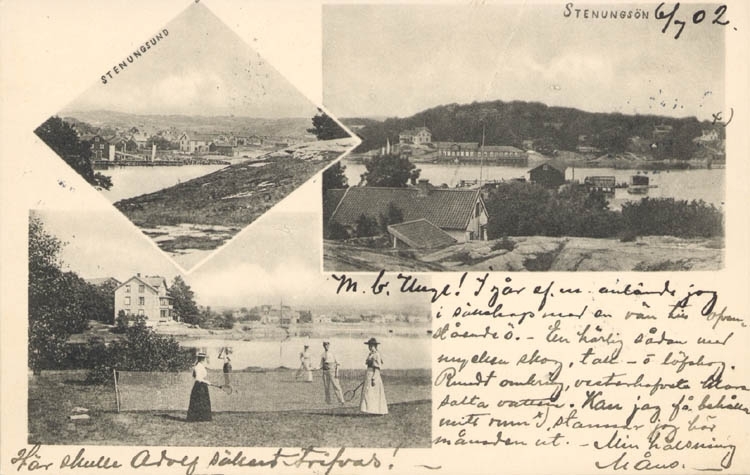 STENUNGSUND
STENUNGSÖN 6/7 02.
M. b. Unge! I går ef. m. anlände jag
i sällskap med en vän till ofvan-
stående ö. - En härlig sådan med
mycken skog, tall- o löfskog.
Rundt omkring, vesterhafvets klara
salta vatten. Kan jag få behålla
mitt rum x), stannar jag här
månaden ut. - Min hälsning
Måns -
Här skulle Adolf säkert trifvas! -